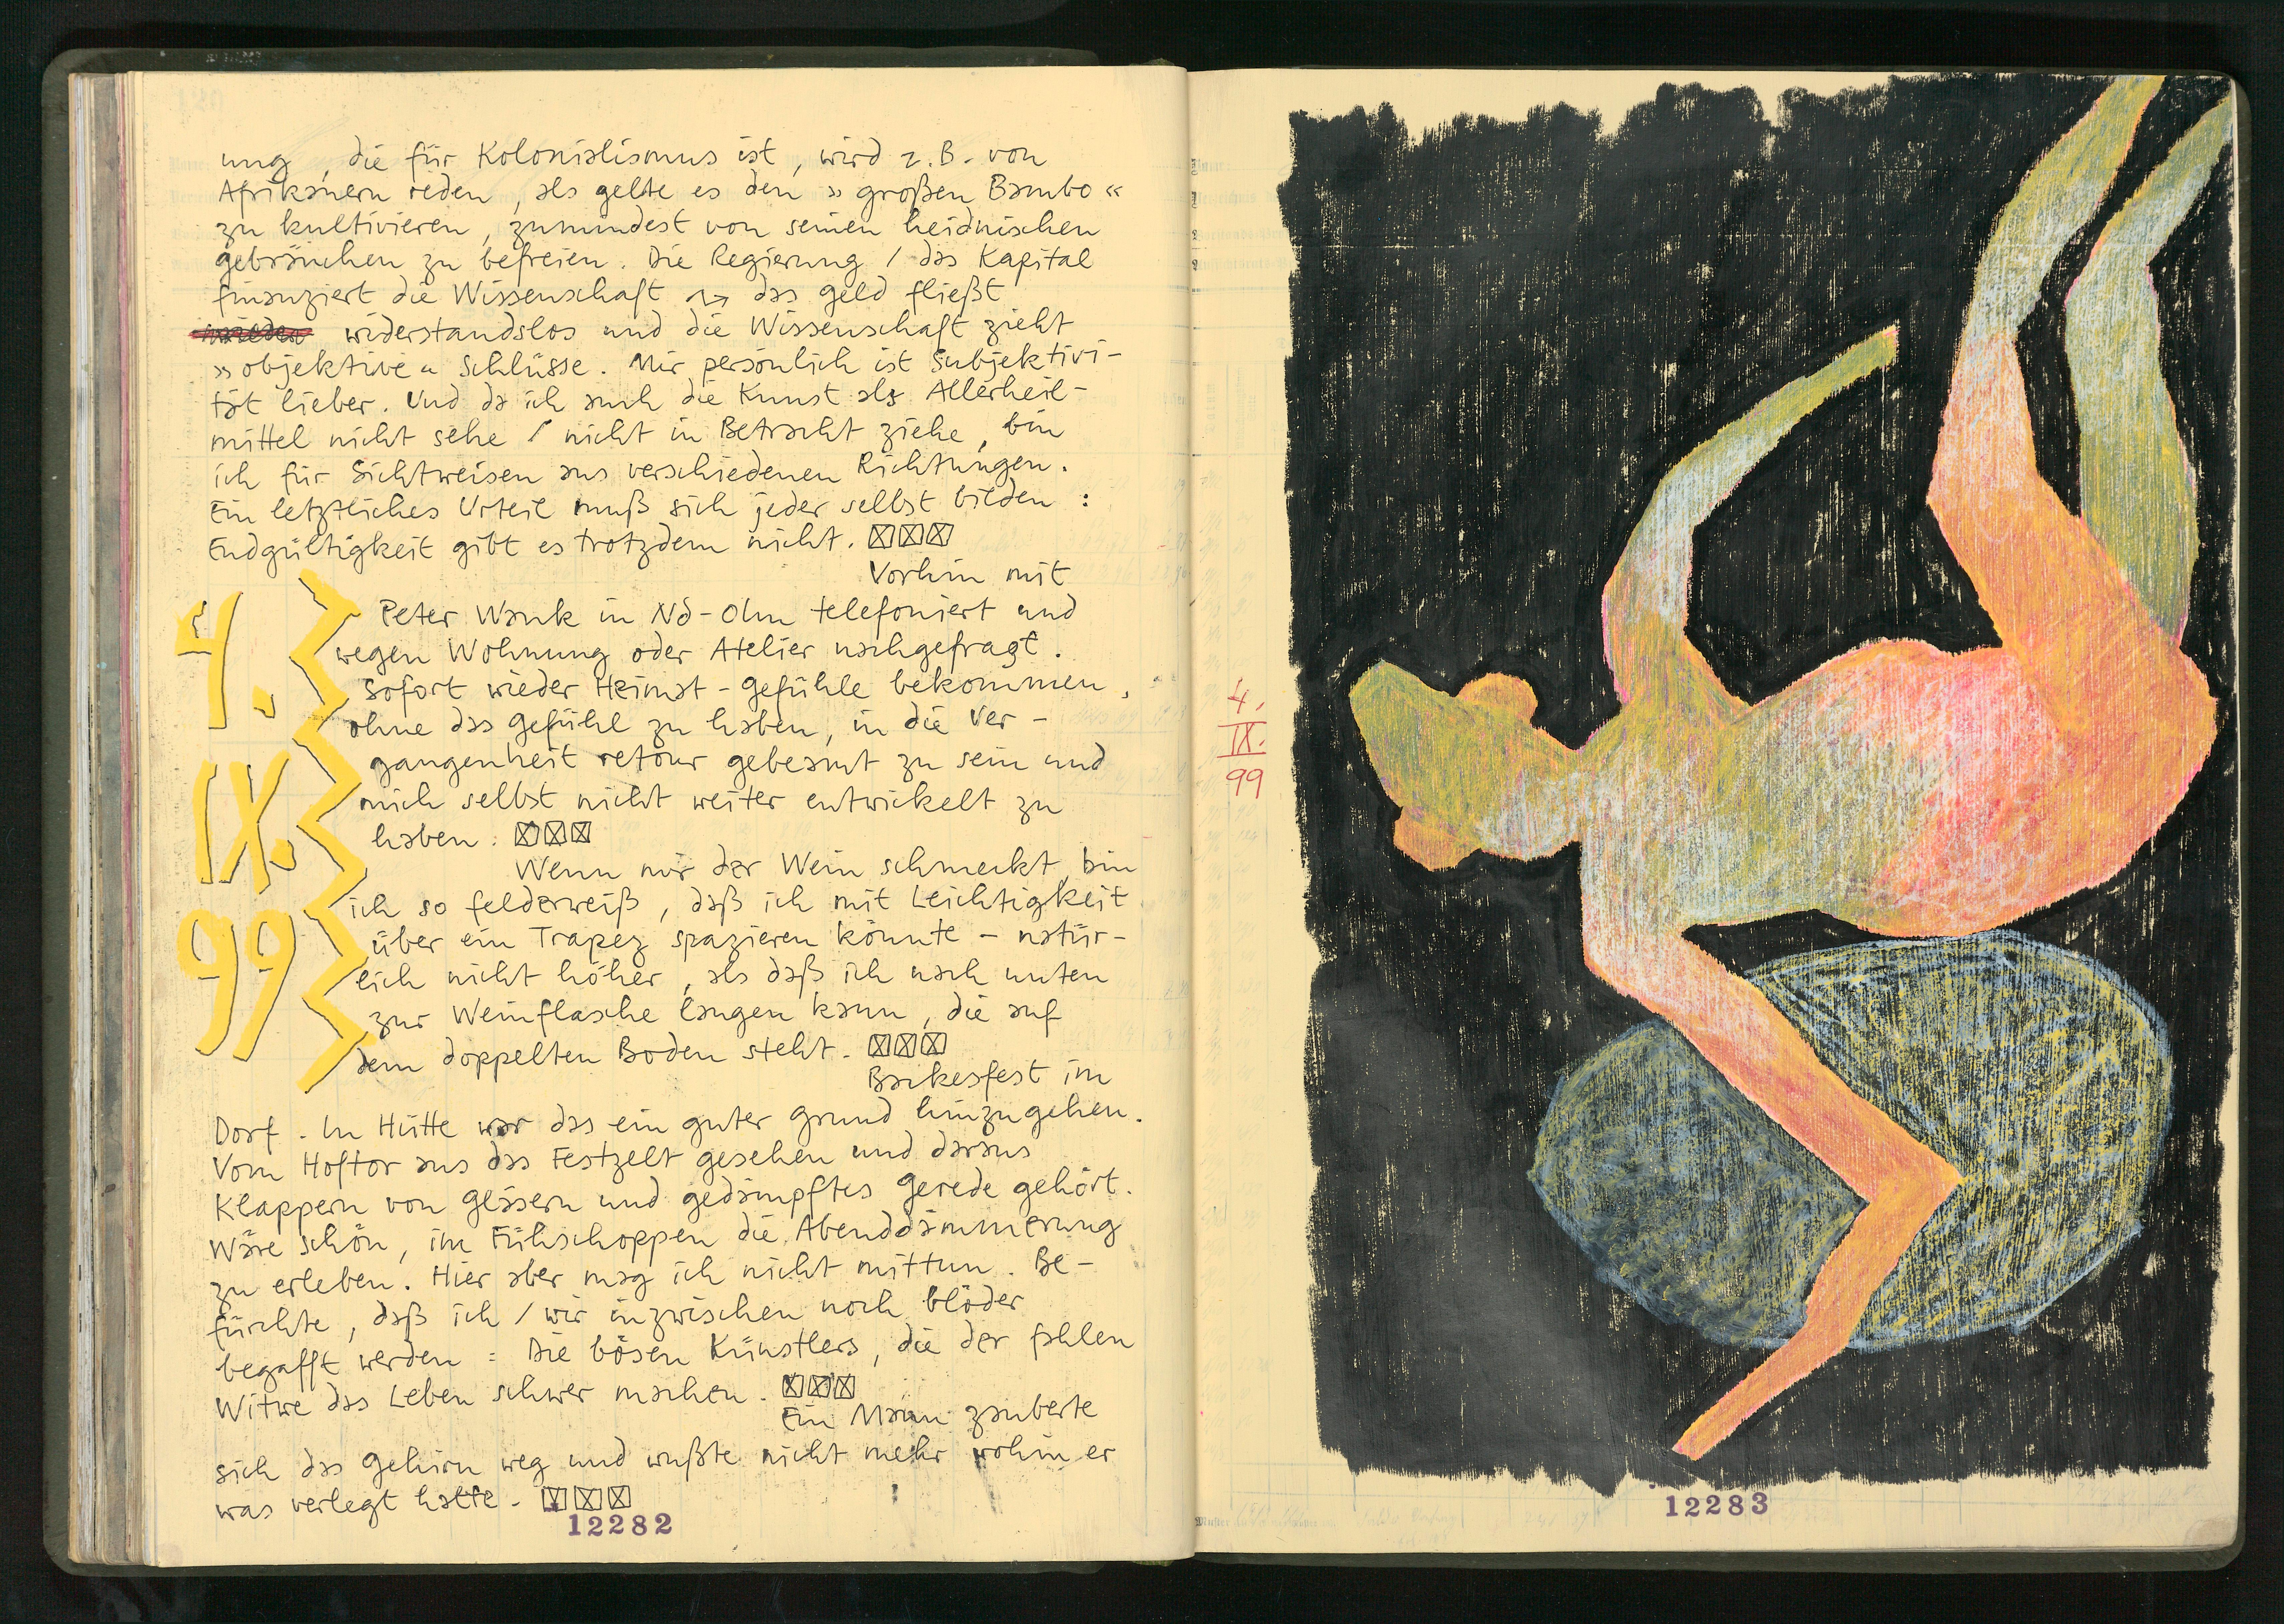 ung, die für Kolonialismus ist, wird z.B. von
Afrikanern reden, als gelte es den »großen Bambo«
zu kultivieren, zumindest von seinen heidnischen
Gebräuchen zu befreien. Die Regierung / das Kapital
finanziert die Wissenschaft → das Geld fließt
widerstandslos und die Wissenschaft zieht
»objektive« Schlüsse. Mir persönlich ist Subjektivi-
tät lieber. Und da ich auch die Kunst als Allerheil-
mittel nicht sehe / nicht in Betracht ziehe, bin
ich für Sichtweisen aus verschiedenen Richtungen.
Ein letztliches Urteil muß sich jeder selbst bilden:
Endgültigkeit gibt es trotzdem nicht. ☒☒☒
Vorhin mit
Peter Wank in Nd-Olm telefoniert und
wegen Wohnung oder Atelier nachgefragt.
Sofort wieder Heimat-Gefühle bekommen,
ohne das Gefühl zu haben, in die Ver-
gangenheit retour gebeamt zu sein und
mich selbst nicht weiter entwickelt zu
haben. ☒☒☒
Wenn mir der Wein schmeckt, bin
ich so federweiß, daß ich mit Leichtigkeit
über ein Trapez spazieren könnte - natür-
lich nicht höher, als daß ich nach unten
zur Weinflasche langen kann, die auf
dem doppelten Boden steht. ☒☒☒
Backesfest im
Dorf. In Hütte war das ein guter Grund hinzugehen.
Vom Hoftor aus das Festzelt gesehen und daraus
Klappern von Gläsern und gedämpftes Gerede gehört.
Wäre schön, im Fühschoppen die Abenddämmerung
zu erleben. Hier aber mag ich nicht mittun. Be-
fürchte, daß ich / wir inzwischen noch blöder
begafft werden = Die bösen Künstlers, die der fahlen
Witwe das Leben schwer machen. ☒☒☒
Ein Mann zauberte
sich das Gehirn weg und wußte nicht mehr wohin er
was verlegt hatte. ☒☒☒
4.
IX.
99
12282
4.
IX.
99
12283